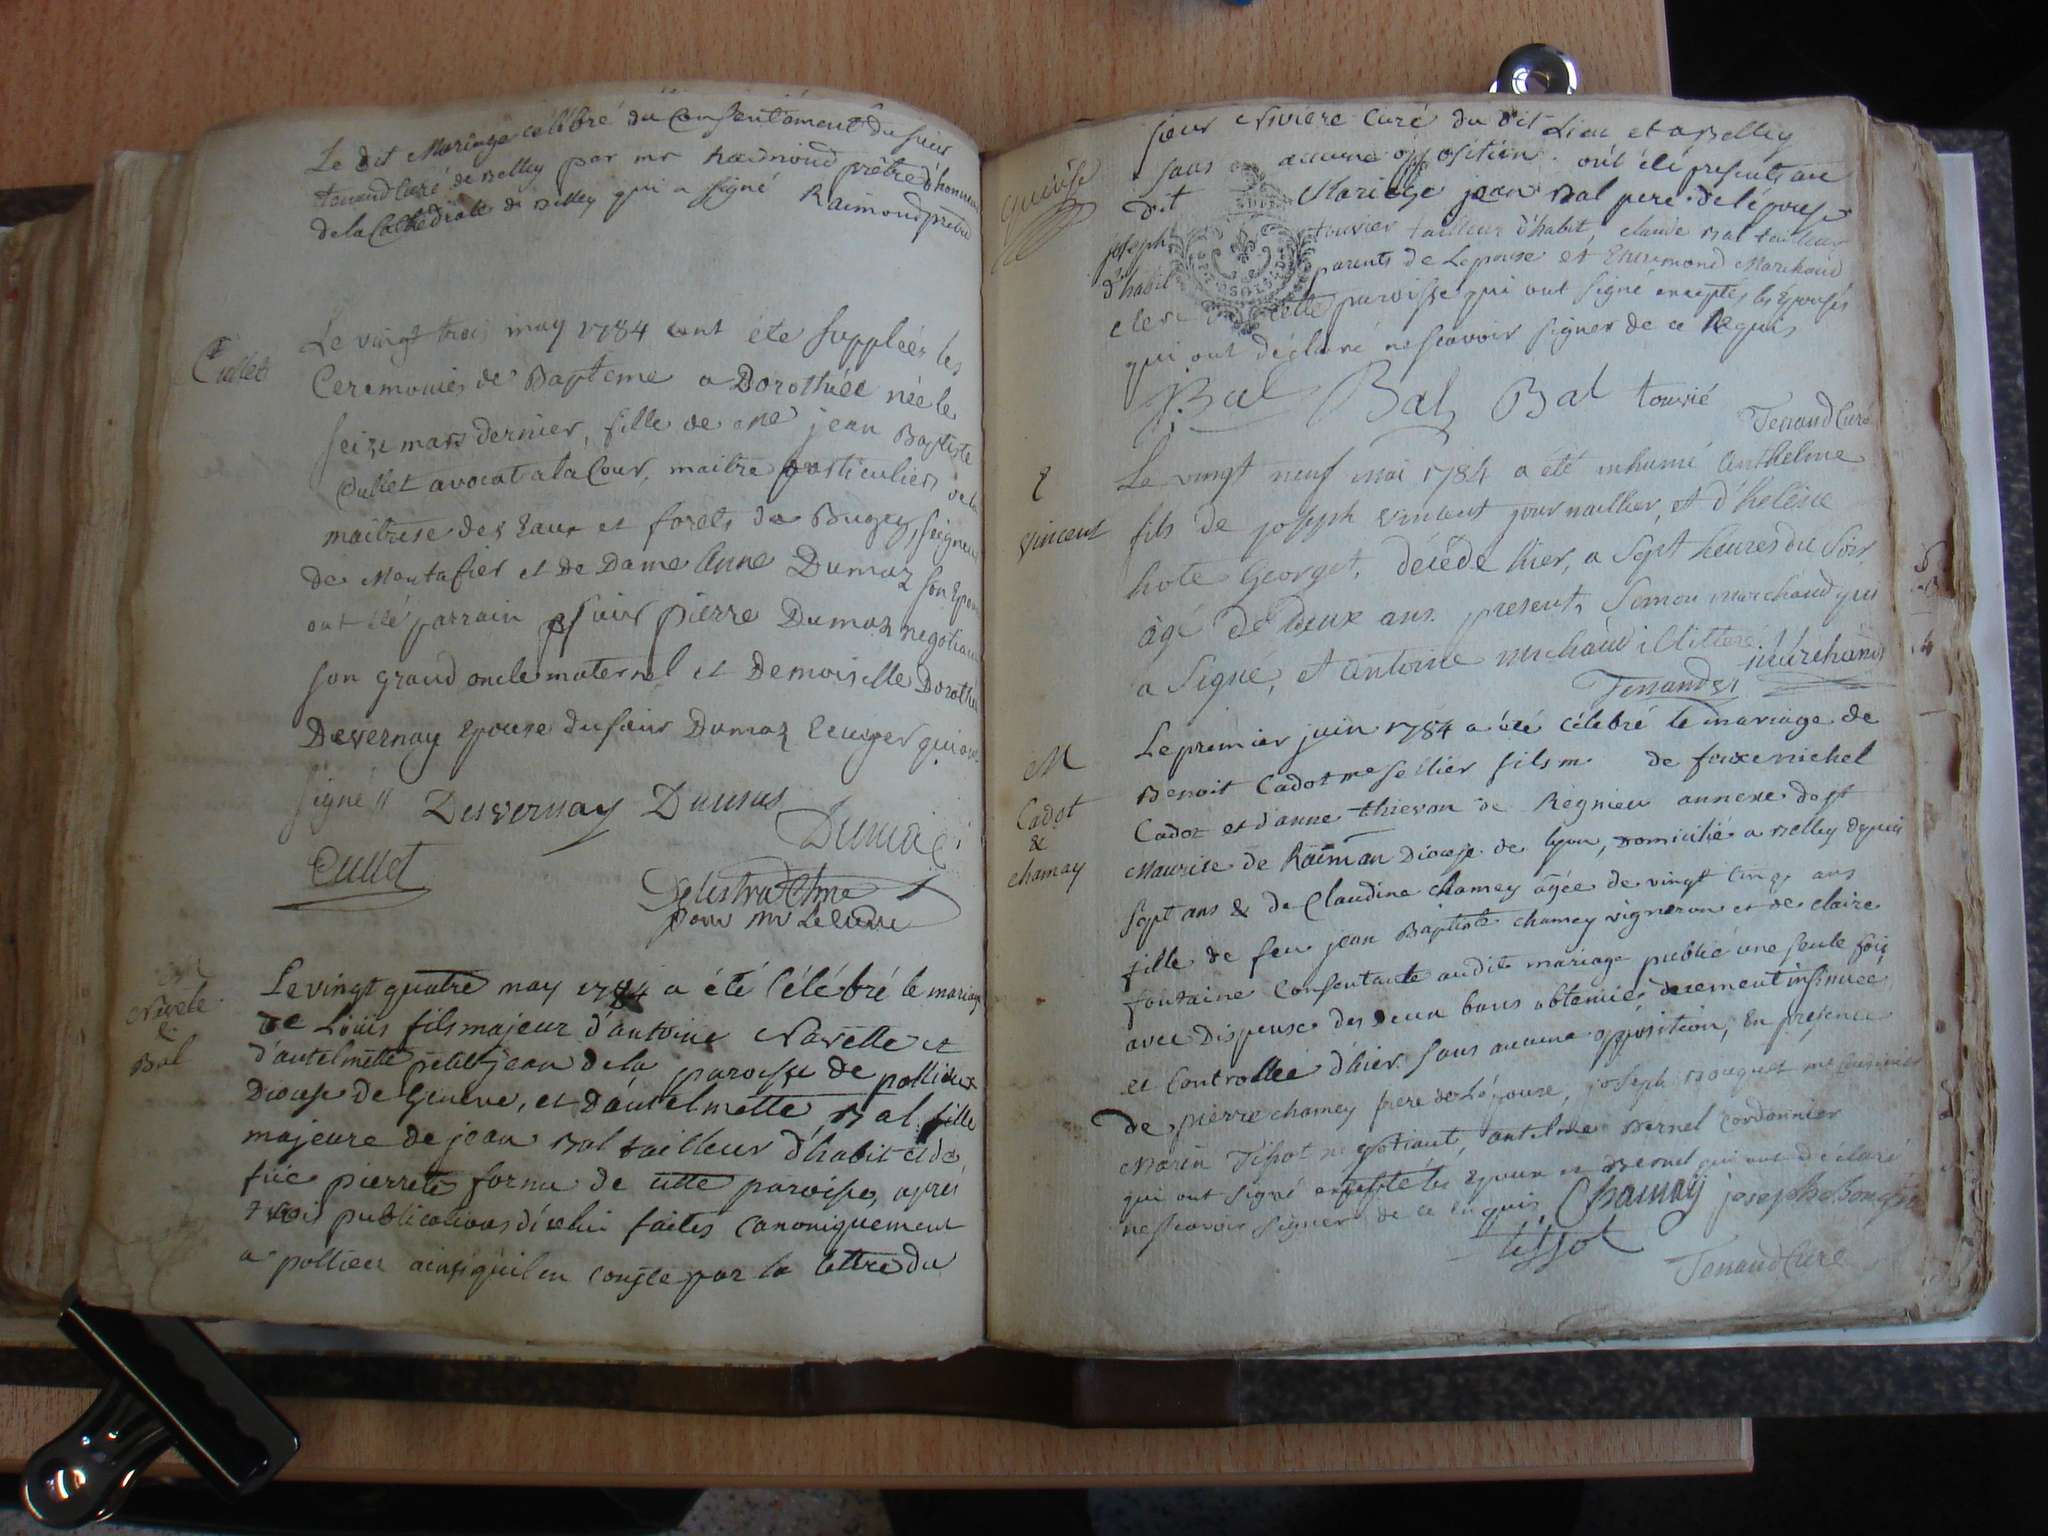 Le dit Mariage célébré du Consentement du sieur
tenand Curé de Belley par mr Raimond prêtre d'honneur
de la Cathédrale de Belley qui a signé Raimond prêtre
Cullet
Le vingt trois may 1784 ont été suppléés les
Ceremonies de Bapteme a Dorothée née le
seize mars dernier, fille de me jean Baptiste
Cullet avocat a la Cour, maitre particulier de la
maitrise des Eaux et forets du Bugey, seigneur
de Montafier et de Dame Anne Dumaz son Epouse
ont été parrain sieur pierre Dumaz negotiant
son grand oncle maternel et Demoiselle Dorothée
Devernay Epouse du sieur Dumaz qui ont
signé // Desvernay Dumas
Cullet
pour mr Le Curé
Navele
&
Bal
Le vingt quatre may 1784 a été Célébré le mariage
de Loüis fils majeur d'antoine Navelle et
d'antelmette petit jean de la paroisse de pollieux
Diocese de Geneve, et d'antelmette Bal fille
majeure de jean Bal tailleur d'habit et de
füe pierrete fornu de cette paroisse, apres
trois publications d'icelui faites Canoniquement
a pollieu ainsi qu'il en Conste par la lettre du
sieur Riviere Curé du dit Lieu et a Belley
sans aucune opposition. ont été presents au
dit Mariage jean Bal pere de l'épouse
joseph touvier tailleur d'habit, claude Bal tailleur
d'habit parents de Lepouse et Marchand
clerc de cette paroisse qui ont signé exceptés les Epousés
qui ont déclaré ne scavoir signer de ce Requis
JBal Bal Bal touvié
Tenand Curé
E
vincent
Le vingt neuf mai 1784 a été inhumé Anthelme
fils de joseph vincent journaillier, et d'helène
hote Georget, décédé hier, a sept heures du soir
âgé de deux ans. presents Simon marchand qui
a Signé, et Antoine michaud illitteré Marchand
Tenand
M
Cadot
&
chamay
Le premier juin 1784 a été célébré le mariage de
Benoit Cadot me sellier fils m. de feu michel
Cadot et d'anne thievon de Régnieu annexe de st
Maurice de Raiman Diocese de lyon, domicilié a Belley depuis
sept ans & de Claudine chamey âgée de vingt cinq ans
fille de feu jean Baptiste chamey vigneron et de claire
fontaine Consentante audit mariage publié une seule fois
avec dispense des deux bans obtenüe, duement insinuée
et Controllée d'hier. sans aucune opposition, En présence
de pierre chamey frere de L'épouse, joseph Bouquet me Cuisinier
Marin Tissot negotiant, antelme Bernel Cordonnier
qui ont signé excepté les Epoux et Bernel qui ont déclaré
ne scavoir signer de ce enquis. Chamay joseph
tissot
Tenand Curé